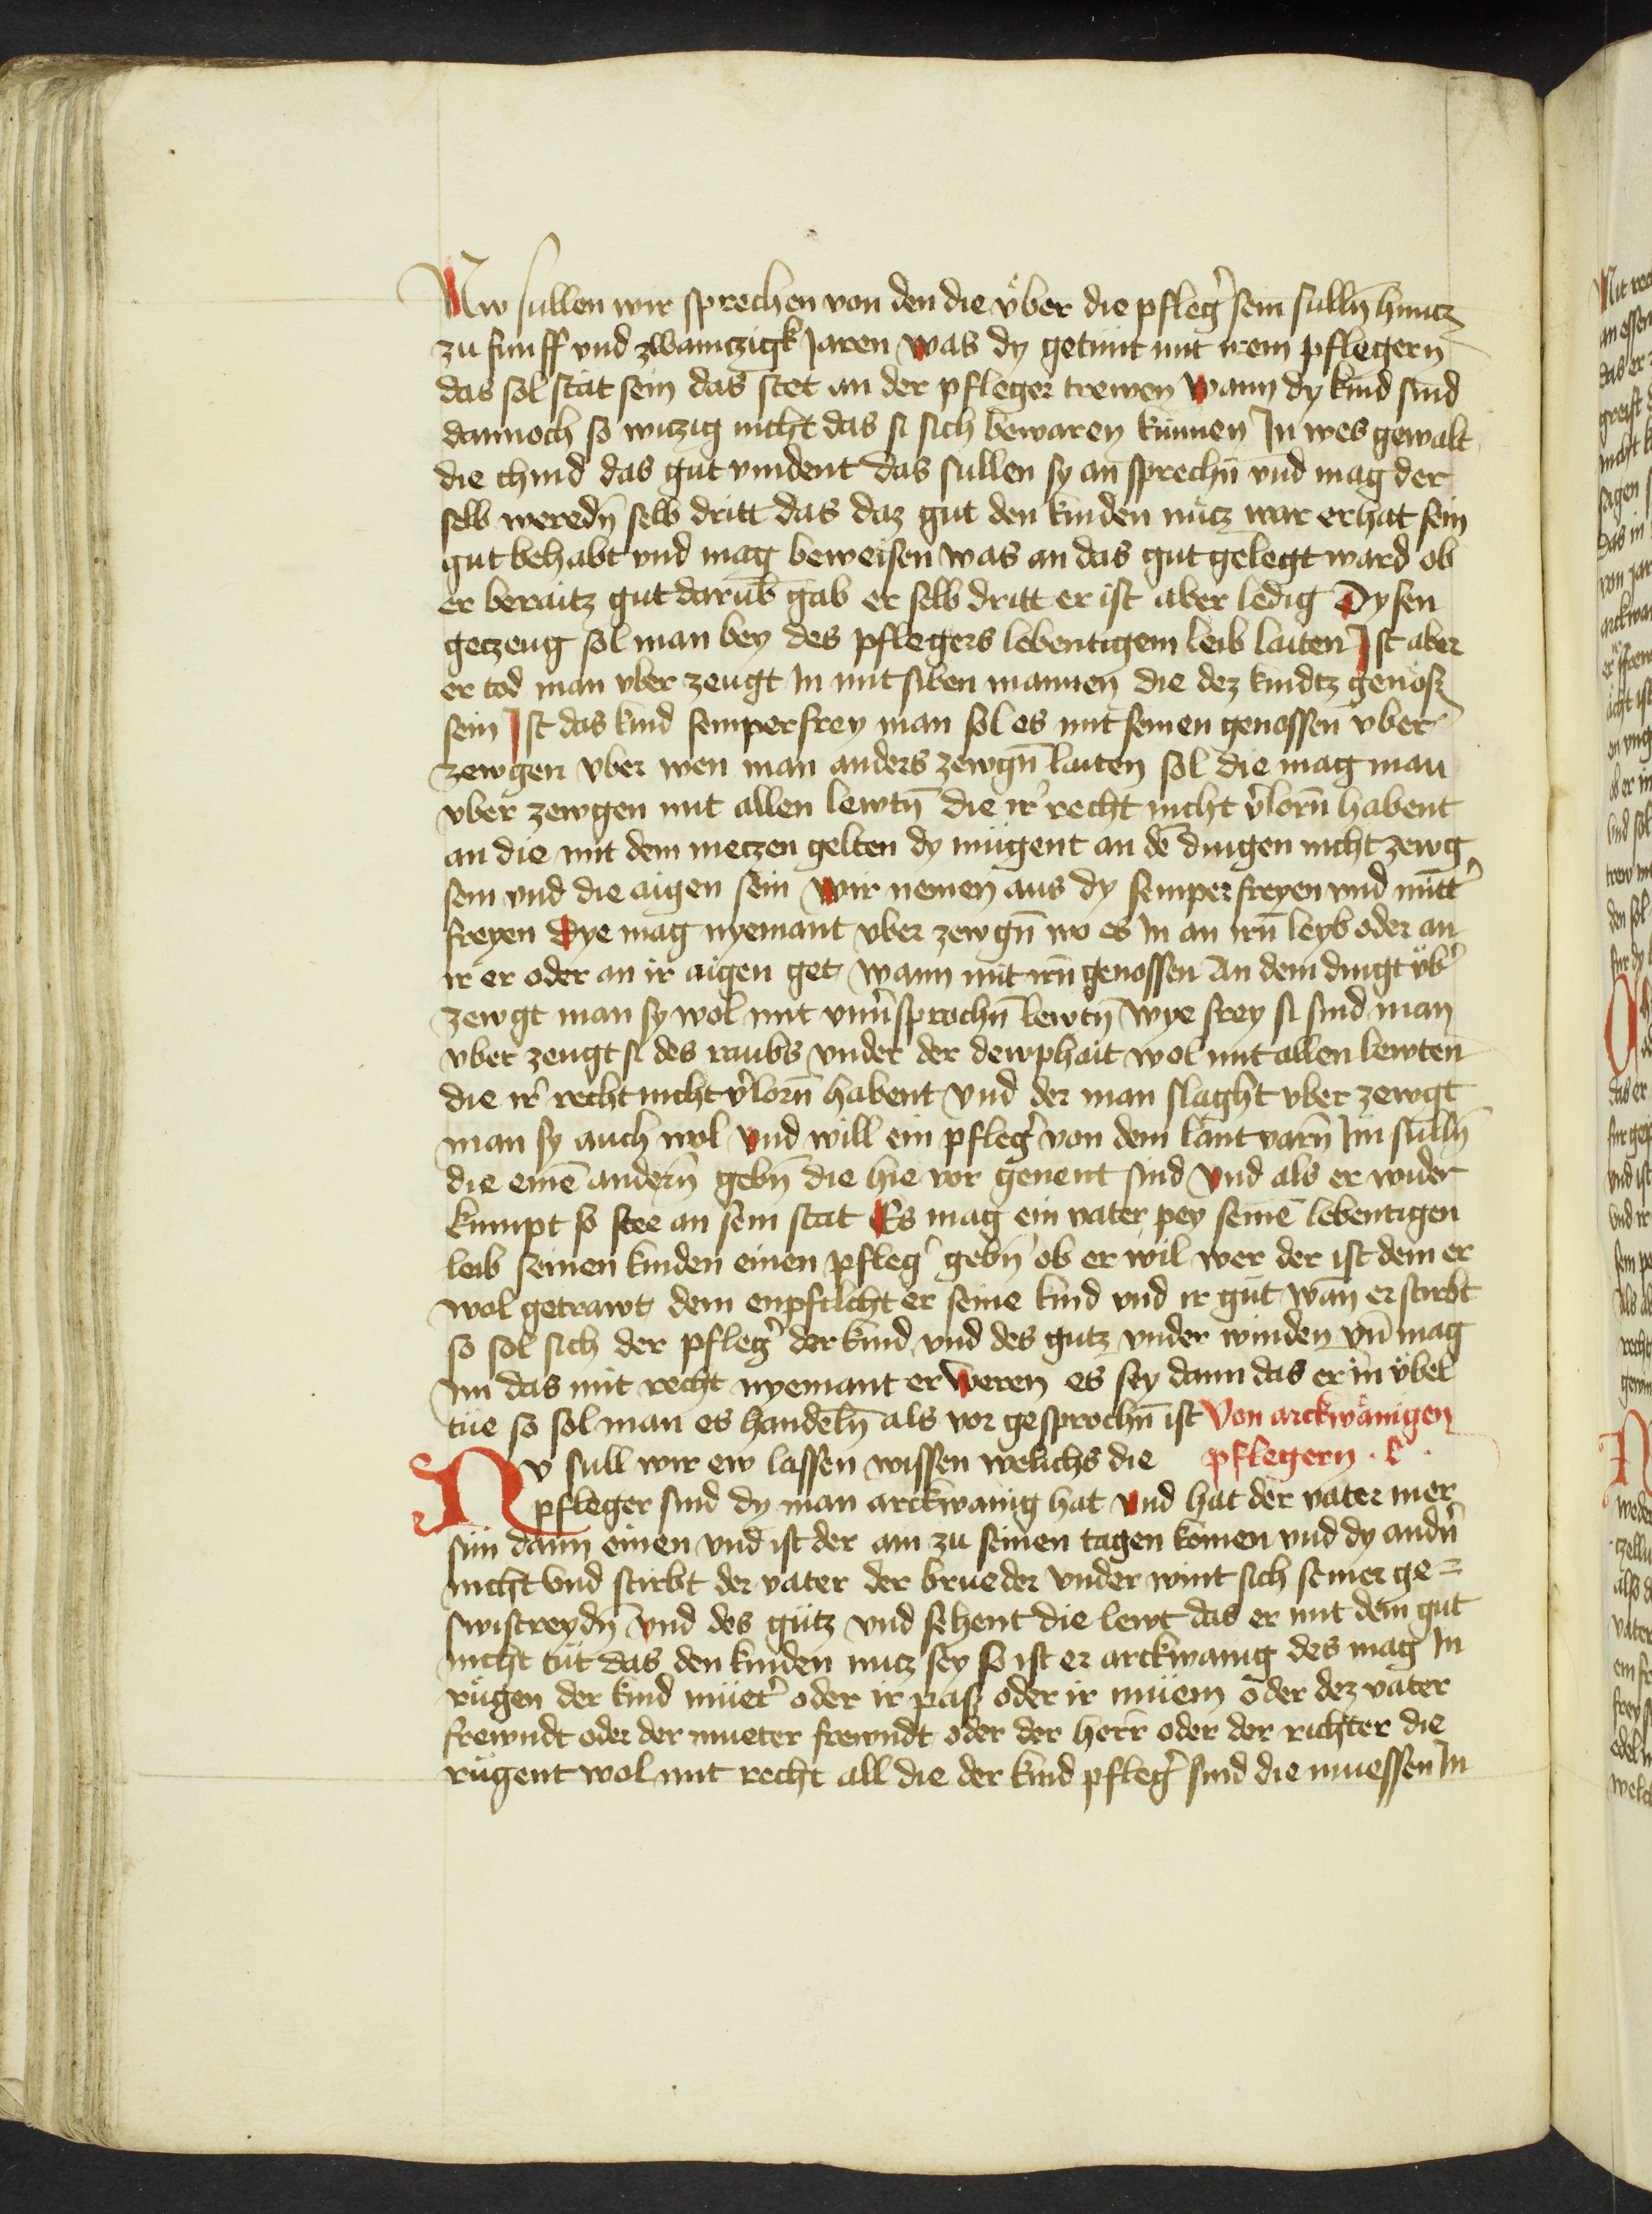 Nw sullen wir sprechen von den die vͤber die pfleg̉ sein sulln̄ huncz
zu funff vnd zwainczigk Jaren was dy getunt mit irem pflegern
das sol stät sein das stet an der pfleger trewen wann dy kind sind
dannoch so wiczig nicht das si sich bewaren künnen In wes gewalt
die chind das gut vindent das sullen sy an sprechn̄ vnd mag der
selb weredn̄ selb dritt das daz gut den kinden nücz war er hat sein
gut behabt vnd mag beweisen was an das gut gelegt ward ob
er beraitz gut darūb gab er selb dritt er ist aber ledig Dysen
geczeug sol man bey des pflegers lebentigem leib laiten Ist aber
er tod man vber zeugt In mit siben mannen die dez kindcz genöss
sein Ist das kind semperfrey man sol es mit seinen genossen vber
zewgen vber wen man anders zewgn̄ laiten sol die mag man
vber zewgen mit allen lewtn̄ die ir̉ recht nicht v̉lorn̄ habent
an die mit dem meczen gelten dy mügent an dē dingen nicht zewg
sein vnd die aigen sein wir nemen aus dy semper freyen vnd mitt̉
freyen Dye mag nyemant vber zewgn̄ wo es In an irn̄ leyb oder an
ir er oder an ir aigen get wann mit irn̄ genossen An dem dingt vͤb̉
zewgt man sy wol mit vnv̉sprochn̄ lewtn̄ wye frey si sind man
vber zeugt si des raubs vnder der dewphait wol mit allen lewten
die ir̉ recht nicht v̉lorn̄ habent vnd der man slaght vber zewgt
man sy auch wol vnd will ein pfleg̉ von dem lant varn̄ Im sulln̄
die einē andern̄ gebn̄ die hie vor genent sind vnd als er wider
kumpt so stee an sein stat Es mag ein vater pey seinē lebentigen
leib seinen kinden einen pfleg̉ gebn̄ ob er wil wer der ist dem er
wol getrawt dem enpfilcht er seine kind vnd ir güt wan̄ er stirbt
so sol sich der pfleg̉ der kind vnd des gutz vnder winden vn̄ mag
im das mit recht nyemant er weren es sey dann das er in vͤbel
tüe so sol man es handeln̄ als vor gesprochn̄ ist Von arckwänigen
Nv sull wir ew lassen wissen welichs die pflegern
pfleger sind dy man arckwanig hat vnd hat der vater mer
sün dann einen vnd ist der ain zu seinen tagen komen vnd dy andn̉
nicht vnd stirbt der vater der brueder vnder wint sich seiner ge=
swistreydn̄ vnd des gütz vnd sehent die lewt das er mit dem gut
nicht tüt das den kinden nucz sey so ist er arckwanig des mag In
rügen der kind müet̉ oder ir pass oder ir müem oder dez vater
frewndt oder der mueter frewndt oder der herr oder der richter die
rügent wol mit recht all die der kind pfleg̉ sind die muessen In